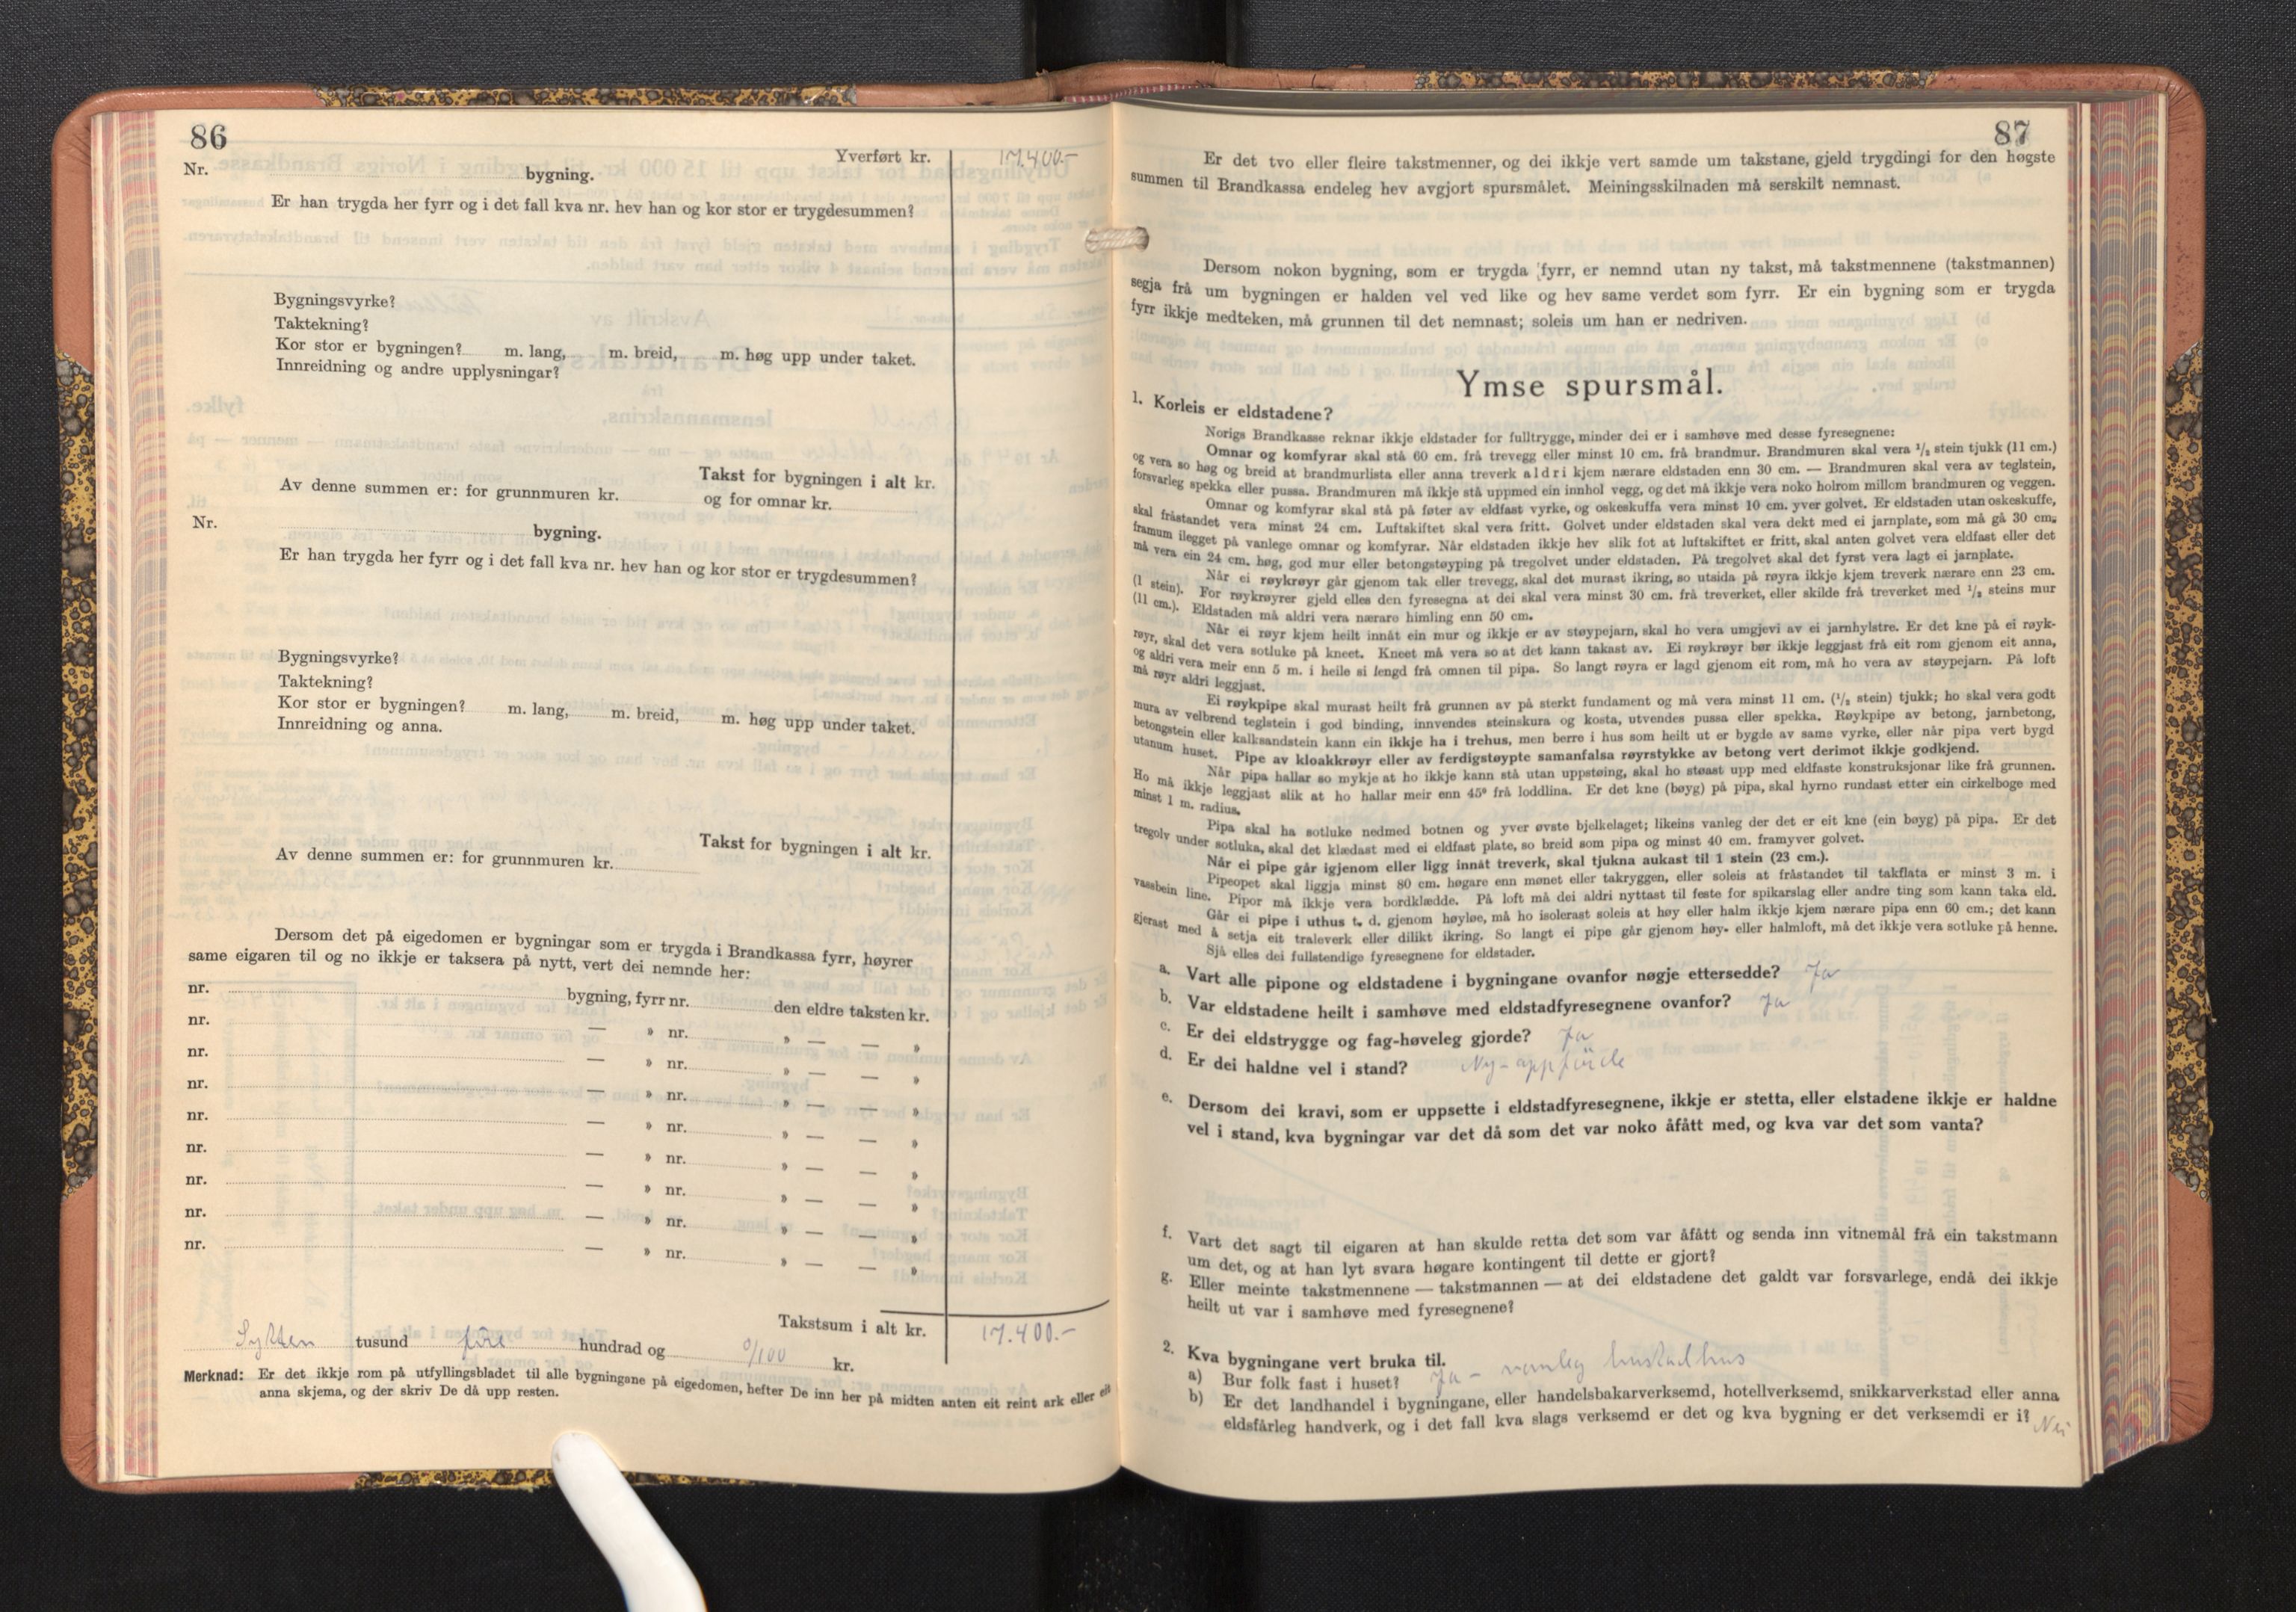 86
Yverført kr. 17.400.-
Nr. bygning.
Er han trygda her fyrr og i det fall kva nr. hev han og kor stor er trygdesummen?
Bygningsvyrke?
Taktekning?
Kor stor er bygningen? m. lang, m. breid, m. høg upp under taket.
Innreidning og andre upplysningar?
Takst for bygningen i alt kr.
Av denne summen er: for grunnmuren kr. og for omnar kr.
Nr. bygning.
Er han trygda her fyrr og i det fall kva nr. hev han og kor stor er trygdesummen?
Bygningsvyrke?
Taktekning?
Kor stor er bygningen? m. lang, m. breid, m. høg upp under taket.
Innreidning og anna.
Takst for bygningen i alt kr.
Av denne summen er: for grunnmuren kr.
Dersom det på eigedomen er bygningar som er trygda i Brandkassa fyrr, høyrer
same eigaren til og no ikkje er taksera på nytt, vert dei nemnde her:
nr. bygning, fyrr nr. den eldre taksten kr.
nr. — » nr. » — — »
nr. — » nr. » — — »
nr. — » nr. » — — »
nr. — » nr. » — — »
nr. — » nr. » — — »
nr. — » nr. » — — »
nr. — » nr. » — — »
nr. — » nr. » — — »
Takstsum i alt kr. 17.400.-
Sytten tusund fire hundrad og 0/100 kr.
Merknad: Er det ikkje rom på utfyllingsbladet til alle bygningane på eigedomen, hefter De inn her på midten anten eit reint ark eller eit
anna skjema, og der skriv De då upp resten.
87
Er det tvo eller fleire takstmenner, og dei ikkje vert samde um takstane, gjeld trygdingi for den høgste
summen til Brandkassa endeleg hev avgjort spursmålet. Meiningsskilnaden må serskilt nemnast.
Dersom nokon bygning, som er trygda fyrr, er nemnd utan ny takst, må takstmennene (takstmannen)
segja frå um bygningen er halden vel ved like og hev same verdet som fyrr. Er ein bygning som er trygda
fyrr ikkje medteken, må grunnen til det nemnast; soleis um han er nedriven.
Ymse spursmål.
1. Korleis er eldstadene?
Norigs Brandkasse reknar ikkje eldstader for fulltrygge, minder dei er i samhøve med desse fyresegnene:
Omnar og komfyrar skal stå 60 cm. frå trevegg eller minst 10 cm. frå brandmur. Brandmuren skal vera ½ stein tjukk (11 cm.)
og vera so høg og breid at brandmurlista eller anna treverk aldri kjem nærare eldstaden enn 30 cm. — Brandmuren skal vera av teglstein,
forsvarleg spekka eller pussa. Brandmuren må ikkje stå uppmed ein innhol vegg, og det må ikkje vera noko holrom millom brandmuren og veggen.
Omnar og komfyrar skal stå på føter av eldfast vyrke, og oskeskuffa vera minst 10 cm. yver golvet. Er eldstaden utan oskeskuffe,
skal fråstandet vera minst 24 cm. Luftskiftet skal vera fritt. Golvet under eldstaden skal vera dekt med ei jarnplate, som må gå 30 cm.
framum ilegget på vanlege omnar og komfyrar. Når eldstaden ikkje hev slik fot at luftskiftet er fritt, skal anten golvet vera eldfast eller det
må vera ein 24 cm. høg, god mur eller betongstøyping på tregolvet under eldstaden. På tregolvet skal det fyrst vera lagt ei jarnplate.
Når ei røykrøyr går gjenom tak eller trevegg, skal det murast ikring, so utsida på røyra ikkje kjem treverk nærare enn 23 cm.
(1 stein). For røykrøyrer gjeld elles den fyresegna at dei skal vera minst 30 cm. frå treverket, eller skilde frå treverket med ½ steins mur
(11 cm.). Eldstaden må aldri vera nærare himling enn 50 cm.
Når ei røyr kjem heilt innåt ein mur og ikkje er av støypejarn, skal ho vera umgjevi av ei jarnhylstre. Er det kne på ei røyk-
røyr, skal det vera sotluke på kneet. Kneet må vera so at det kann takast av. Ei røykrøyr bør ikkje leggjast frå eit rom gjenom eit anna,
og aldri vera meir enn 5 m. i heile si lengd frå omnen til pipa. So langt røyra er lagd gjenom eit rom, må ho vera av støypejarn. På loft
må røyr aldri leggjast.
Ei røykpipe skal murast heilt frå grunnen av på sterkt fundament og må vera minst 11 cm. (½ stein) tjukk; ho skal vera godt
mura av velbrend teglstein i god binding, innvendes steinskura og kosta, utvendes pussa eller spekka. Røykpipe av betong, jarnbetong,
betongstein eller kalksandstein kann ein ikkje ha i trehus, men berre i hus som heilt ut er bygde av same vyrke, eller når pipa vert bygd
utanum huset. Pipe av kloakkrøyr eller av ferdigstøypte samanfalsa røyrstykke av betong vert derimot ikkje godkjend.
Når pipa hallar so mykje at ho ikkje kann stå utan uppstøing, skal ho støast upp med eldfaste konstruksjonar like frå grunnen.
Ho må ikkje leggjast slik at ho hallar meir enn 45º frå loddlina. Er det kne (bøyg) på pipa, skal hyrno rundast etter ein cirkelboge med
minst 1 m. radius.
Pipa skal ha sotluke nedmed botnen og yver øvste bjelkelaget; likeins vanleg der det er eit kne (ein bøyg) på pipa. Er det
tregolv under sotluka, skal det klædast med ei eldfast plate, so breid som pipa og minst 40 cm. framyver golvet.
Når ei pipe går igjenom eller ligg innåt treverk, skal tjukna aukast til 1 stein (23 cm.).
Pipeopet skal liggja minst 80 cm. høgare enn mønet eller takryggen, eller soleis at fråstandet til takflata er minst 3 m. i
vassbein line. Pipor må ikkje vera bordklædde. På loft må dei aldri nyttast til feste for spikarslag eller andre ting som kann taka eld.
Går ei pipe i uthus t. d. gjenom høyløe, må ho isolerast soleis at høy eller halm ikkje kjem nærare pipa enn 60 cm.; det kann
gjerast med å setja eit traleverk eller dilikt ikring. So langt ei pipe går gjenom høy- eller halmloft, må det ikkje vera sotluke på henne.
Sjå elles dei fullstendige fyresegnene for eldstader.
a. Vart alle pipone og eldstadene i bygningane ovanfor nøgje ettersedde? Ja
b. Var eldstadene heilt i samhøve med eldstadfyresegnene ovanfor? Ja
c. Er dei eldstrygge og fag-høveleg gjorde? Ja
d. Er dei haldne vel i stand? Ny-oppførde
e. Dersom dei kravi, som er uppsette i eldstadfyresegnene, ikkje er stetta, eller elstadene ikkje er haldne
vel i stand, kva bygningar var det då som det var noko åfått med, og kva var det som vanta?
f. Vart det sagt til eigaren at han skulde retta det som var åfått og senda inn vitnemål frå ein takstmann
um det, og at han lyt svara høgare kontingent til dette er gjort?
g. Eller meinte takstmennene — takstmannen — at dei eldstadene det galdt var forsvarlege, endå dei ikkje
heilt ut var i samhøve med fyresegnene?
2. Kva bygningane vert bruka til.
a) Bur folk fast i huset? Ja - vanleg bustadhus
b) Er det landhandel i bygningane, eller handelsbakarverksemd, hotellverksemd, snikkarverkstad eller anna
eldsfårleg handverk, og i det fall kva slags verksemd er det og kva bygning er det verksemdi er i? Nei